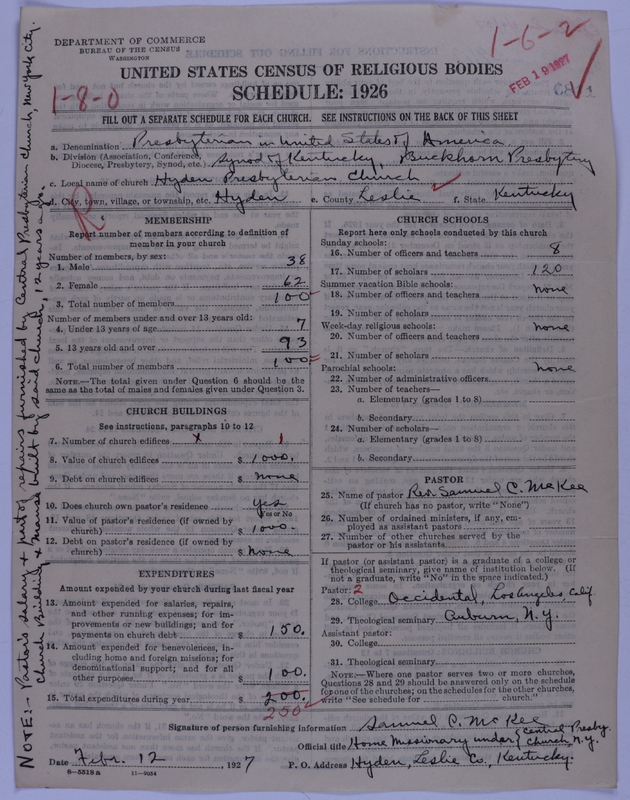 DEPARTMENT OF COMMERCE
BUREAU OF THE CENSUS
WASHINGTON
1-6-2
FEB 19 1927
1-8-0
UNITED STATES CENSUS OF RELIGIOUS BODIES
SCHEDULE: 1926
FILL OUT A SEPARATE SCHEDULE FOR EACH CHURCH. SEE INSTRUCTIONS ON THE BACK OF THIS SHEET
a. Denomination Presbyterian in United States of America
b. Division (Association, Conference, Diocese, Presbytery, Synod, etc.) Synod of Kentucky, Buckhorn Presbytery
c. Local name of church Hyden Presbyterian Church
d. City, town, village, or township, etc. Hyden e. County Leslie f. State Kentucky
R
MEMBERSHIP
Report number of members according to definition of
member in your church
Number of members, by sex:
1. Male 38
2. Female 62
3. Total number of members 100
Number of members under and over 13 years old:
4. Under 13 years of age 7
5. 13 years old and over 93
6. Total number of members 100
NOTE.—The total given under Question 6 should be the
same as the total of males and females given under Question 3.
CHURCH BUILDINGS
See instructions, paragraphs 10 to 12
7. Number of church edifices x 1
8. Value of church edifices $ 1000.
9. Debt on church edifices $ None
10. Does church own pastor's residence yes
Yes or No
11. Value of pastor's residence (if owned by
church) $ 1000.
12. Debt on pastor's residence (if owned by
church) $ None
EXPENDITURES
Amount expended by your church during last fiscal year
13. Amount expended for salaries, repairs,
and other running expenses; for im-
provements or new buildings; and for
payments on church debt $ 150.
14. Amount expended for benevolences, in-
cluding home and foreign missions; for
denominational support; and for all
other purposes $ 100.
15. Total expenditures during year $ 200.
250
CHURCH SCHOOLS
Report here only schools conducted by this church
Sunday schools:
16. Number of officers and teachers 8
17. Number of scholars 120
Summer vacation Bible schools: none
18. Number of officers and teachers
19. Number of scholars
Week-day religious schools: none
20. Number of officers and teachers
21. Number of scholars
Parochial schools: none
22. Number of administrative officers
23. Number of teachers—
a. Elementary (grades 1 to 8)
b. Secondary
24. Number of scholars—
a. Elementary (grades 1 to 8)
b. Secondary
PASTOR
25. Name of pastor Rev. Samuel C. McKee
(If church has no pastor, write "None")
26. Number of ordained ministers, if any, em-
ployed as assistant pastors
27. Number of other churches served by the
pastor or his assistants
If pastor (or assistant pastor) is a graduate of a college or
theological seminary, give name of institution below. (If
not a graduate, write "No" in the space indicated.)
Pastor: 2
28. College Occidental, Los Angeles, Calif.
29. Theological seminary Auburn, N.Y.
Assistant pastor:
30. College
31. Theological seminary
NOTE.—Where one pastor serves two or more churches,
Questions 28 and 29 should be answered only on the schedule
for one of the churches; on the schedules for the other churches,
write "See schedule for church."
Signature of person furnishing information Samuel C. McKee
Official title Home Missionary under Central Presby. Church, N.Y.
Date Febr. 12 1927 P. O. Address Hyden, Leslie Co., Kentucky.
8—5518 a 11—9054
NOTE:- Pastor's salary + part of repairs furnished by Central Presbyterian Church, New York City.
Church Building + manse built by said church, 12 years ago.